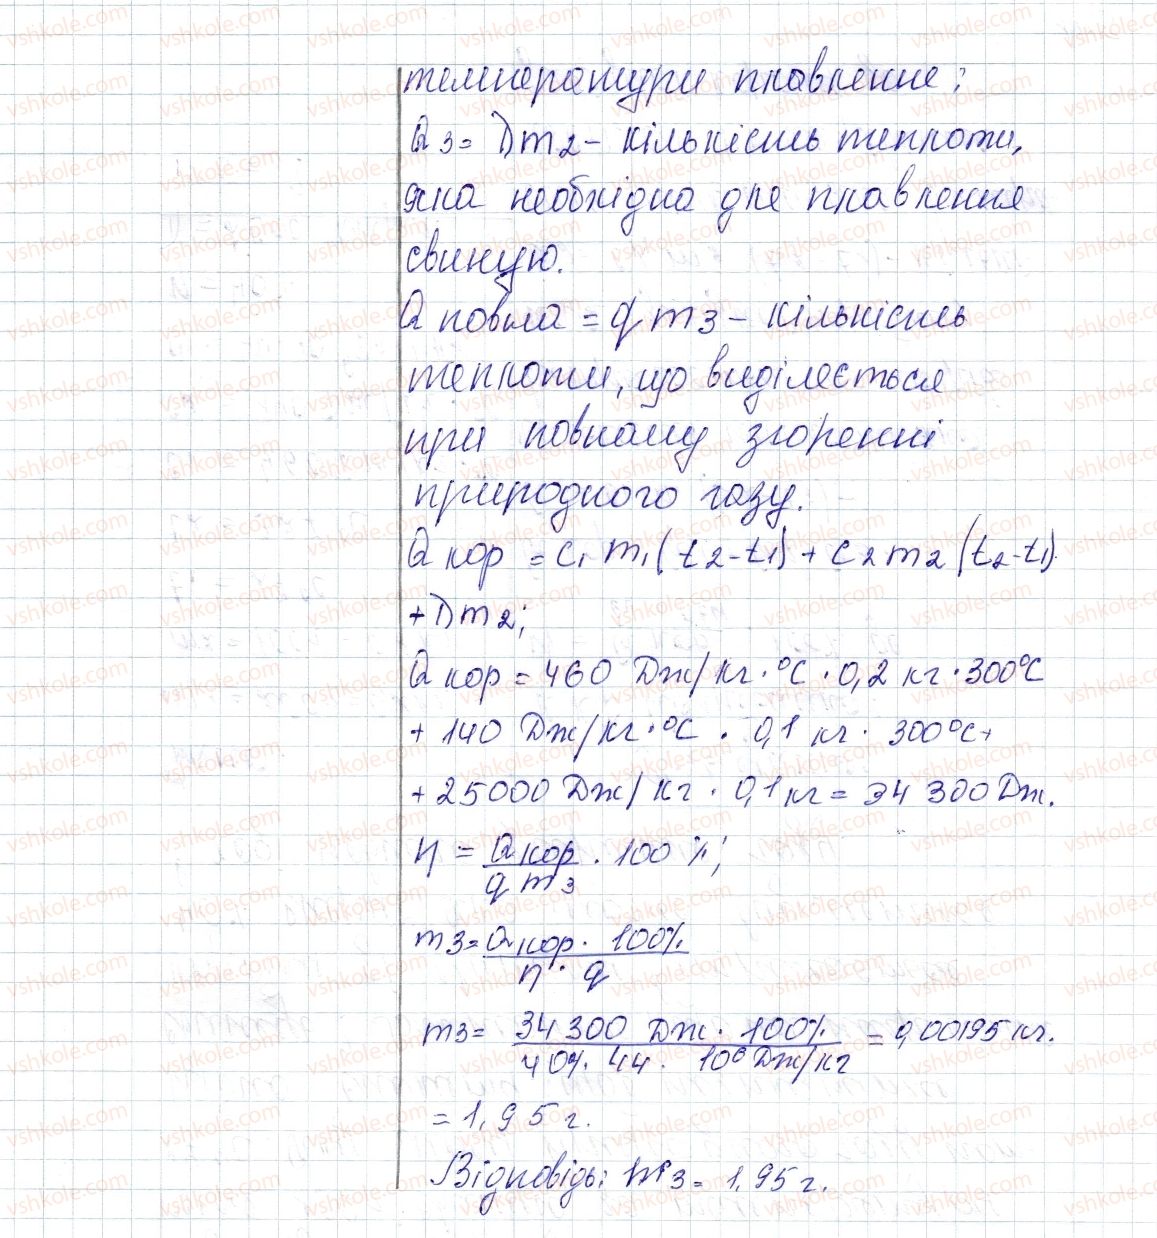 температури плавлення;
Q3 = λm2 - кількість теплоти,
яка необхідна для плавлення
свинцю.
Q повна = qm3 - кількість
теплоти, що виділяється
при повному згоренні
природного газу.
Q кор = c1 m1 (t2-t1) + c2 m2 (t2-t1)
+ λm2;
Q кор = 460 Дж/кг·°C · 0,2 кг · 300°C
+ 140 Дж/кг·°C · 0,1 кг · 300°C +
+ 25000 Дж/кг · 0,1 кг = 34 300 Дж.
η = Q кор / q m3 · 100 %;
m3 = Q кор · 100% / η · q
m3 = 34 300 Дж · 100% / 40% · 44 · 10⁶ Дж/кг = 0,00195 кг.
= 1,95 г.
Відповідь: m3 = 1,95 г.